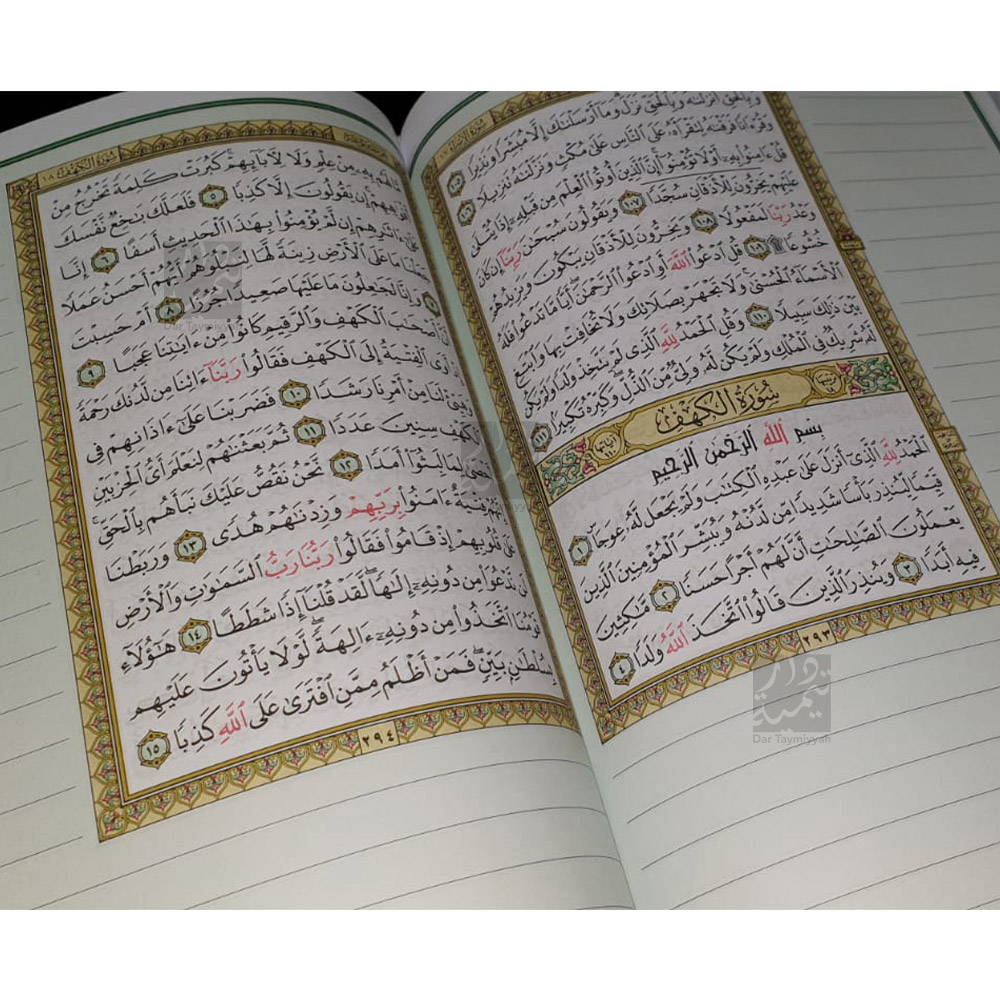 سورة الإسراء ١٧
وبالحق أنزلنه وبالحق نزل وما أرسلنك إلا مبشرا ونذيرا ١٠٥
وقرءانا فرقنه لتقرأه على الناس على مكث ونزلنه تنزيلا ١٠٦
قل ءامنوا به أو لا تؤمنوا إن الذين أوتوا العلم من قبله إذا يتلى
عليهم يخرون للأذقان سجدا ١٠٧ ويقولون سبحن ربنا إن كان
وعد ربنا لمفعولا ١٠٨ ويخرون للأذقان يبكون ويزيدهم
خشوعا ۩ ١٠٩ قل ادعوا الله أو ادعوا الرحمن أيا ما تدعوا فله
الأسماء الحسنى ولا تجهر بصلاتك ولا تخافت بها وابتغ
بين ذلك سبيلا ١١٠ وقل الحمد لله الذي لم يتخذ ولدا ولم يكن
له شريك في الملك ولم يكن له ولي من الذل وكبره تكبيرا ١١١
سورة الكهف
بسم الله الرحمن الرحيم
الحمد لله الذي أنزل على عبده الكتب ولم يجعل له عوجا ١
قيما لينذر بأسا شديدا من لدنه ويبشر المؤمنين الذين
يعملون الصلحت أن لهم أجرا حسنا ٢ مكثين
فيه أبدا ٣ وينذر الذين قالوا اتخذ الله ولدا ٤
٢٩٣
سورة الكهف ١٨
لهم به من علم ولا لآبائهم كبرت كلمة تخرج من
أفوههم إن يقولون إلا كذبا ٥ فلعلك بخع نفسك
على ءاثرهم إن لم يؤمنوا بهذا الحديث أسفا ٦ إنا
جعلنا ما على الأرض زينة لها لنبلوهم أيهم أحسن عملا
٧ وإنا لجعلون ما عليها صعيدا جرزا ٨ أم حسبت
أن أصحب الكهف والرقيم كانوا من ءايتنا عجبا ٩
إذ أوى الفتية إلى الكهف فقالوا ربنا ءاتنا من لدنك رحمة
وهيئ لنا من أمرنا رشدا ١٠ فضربنا على ءاذانهم في
الكهف سنين عددا ١١ ثم بعثنهم لنعلم أي الحزبين
أحصى لما لبثوا أمدا ١٢ نحن نقص عليك نبأهم بالحق
إنهم فتية ءامنوا بربهم وزدنهم هدى ١٣ وربطنا
على قلوبهم إذ قاموا فقالوا ربنا رب السموت والأرض
لن ندعوا من دونه إلها لقد قلنا إذا شططا ١٤ هؤلاء
قومنا اتخذوا من دونه ءالهة لولا يأتون عليهم
بسلطن بين فمن أظلم ممن افترى على الله كذبا ١٥
٢٩٤
دار تيمية
Dar Taymiyyah
Dar Taymiyyah